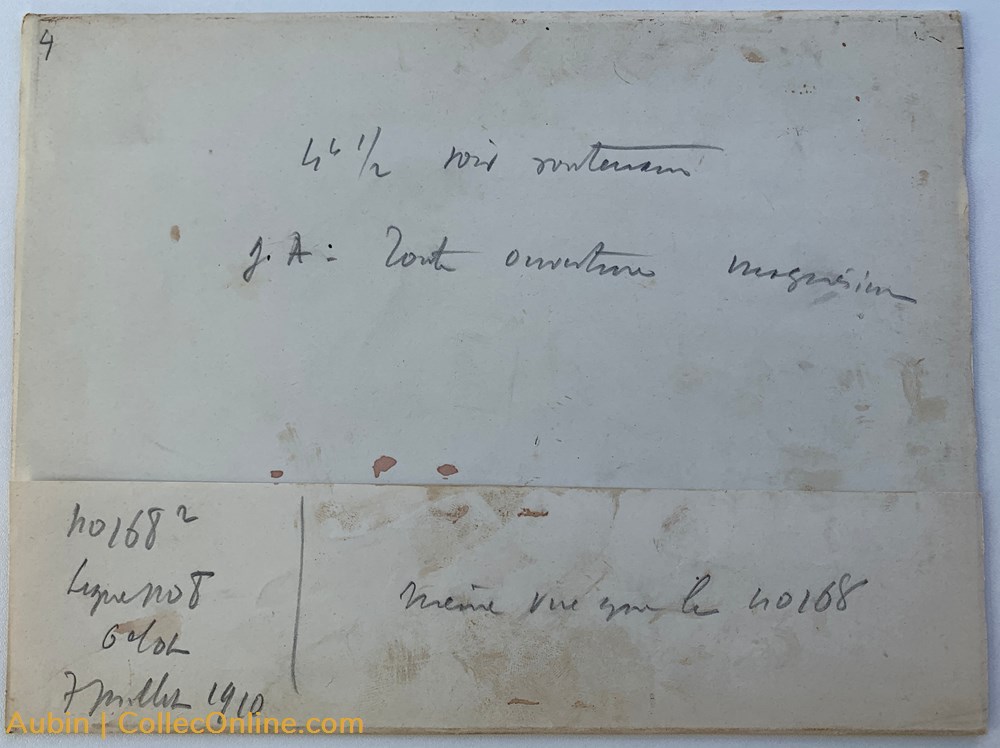 4
4h 1/2 soir souterrain
J. A : Toute ouverture magnésium
no 168 2
Ligne no 8
6e lot
7 juillet 1910
même vue que le no 168
Aubin | CollecOnline.com